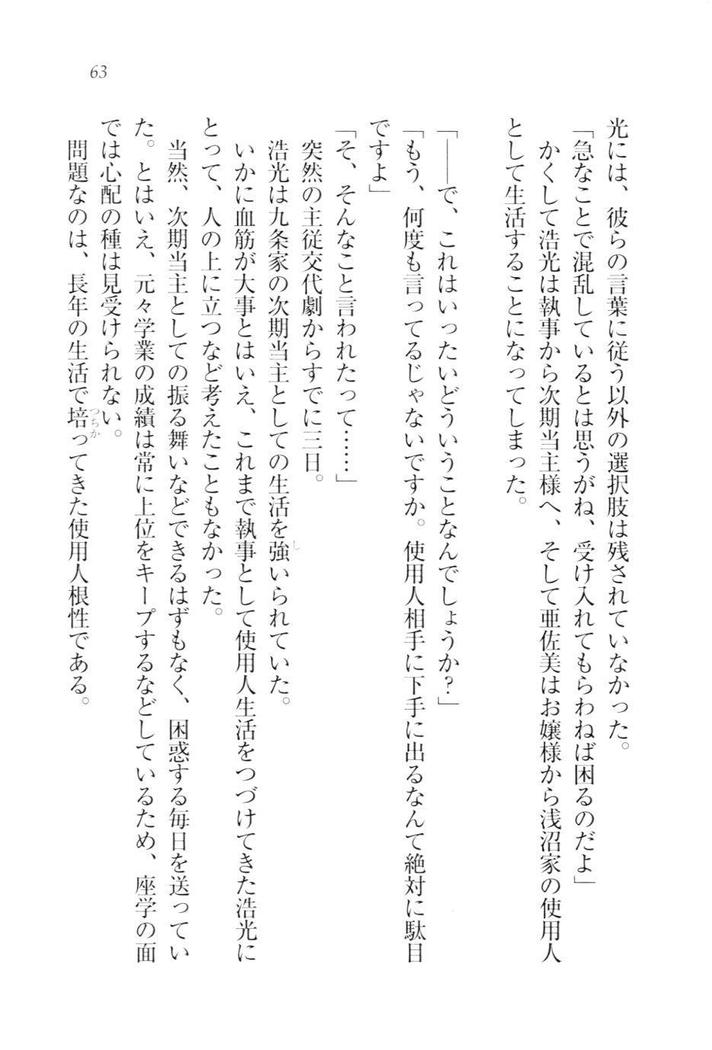 63
光には、彼らの言葉に従う以外の選択肢は残されていなかった。
「急なことで混乱しているとは思うがね、受け入れてもらわねば困るのだよ」
かくして浩光は執事から次期当主様へ、そして亜佐美はお嬢様から浅沼家の使用人
として生活することになってしまった。
「――で、これはいったいどういうことなんでしょうか？」
「もう、何度も言ってるじゃないですか。使用人相手に下手に出るなんて絶対に駄目
ですよ」
「そ、そんなこと言われたって……」
突然の主従交代劇からすでに三日。
浩光は九条家の次期当主としての生活を強いられていた。
し
いかに血筋が大事とはいえ、これまで執事として使用人生活をつづけてきた浩光に
とって、人の上に立つなど考えたこともなかった。
当然、次期当主としての振る舞いなどできるはずもなく、困惑する毎日を送ってい
た。とはいえ、元々学業の成績は常に上位をキープするなどしているため、座学の面
では心配の種は見受けられない。
問題なのは、長年の生活で培ってきた使用人根性である。
つちか